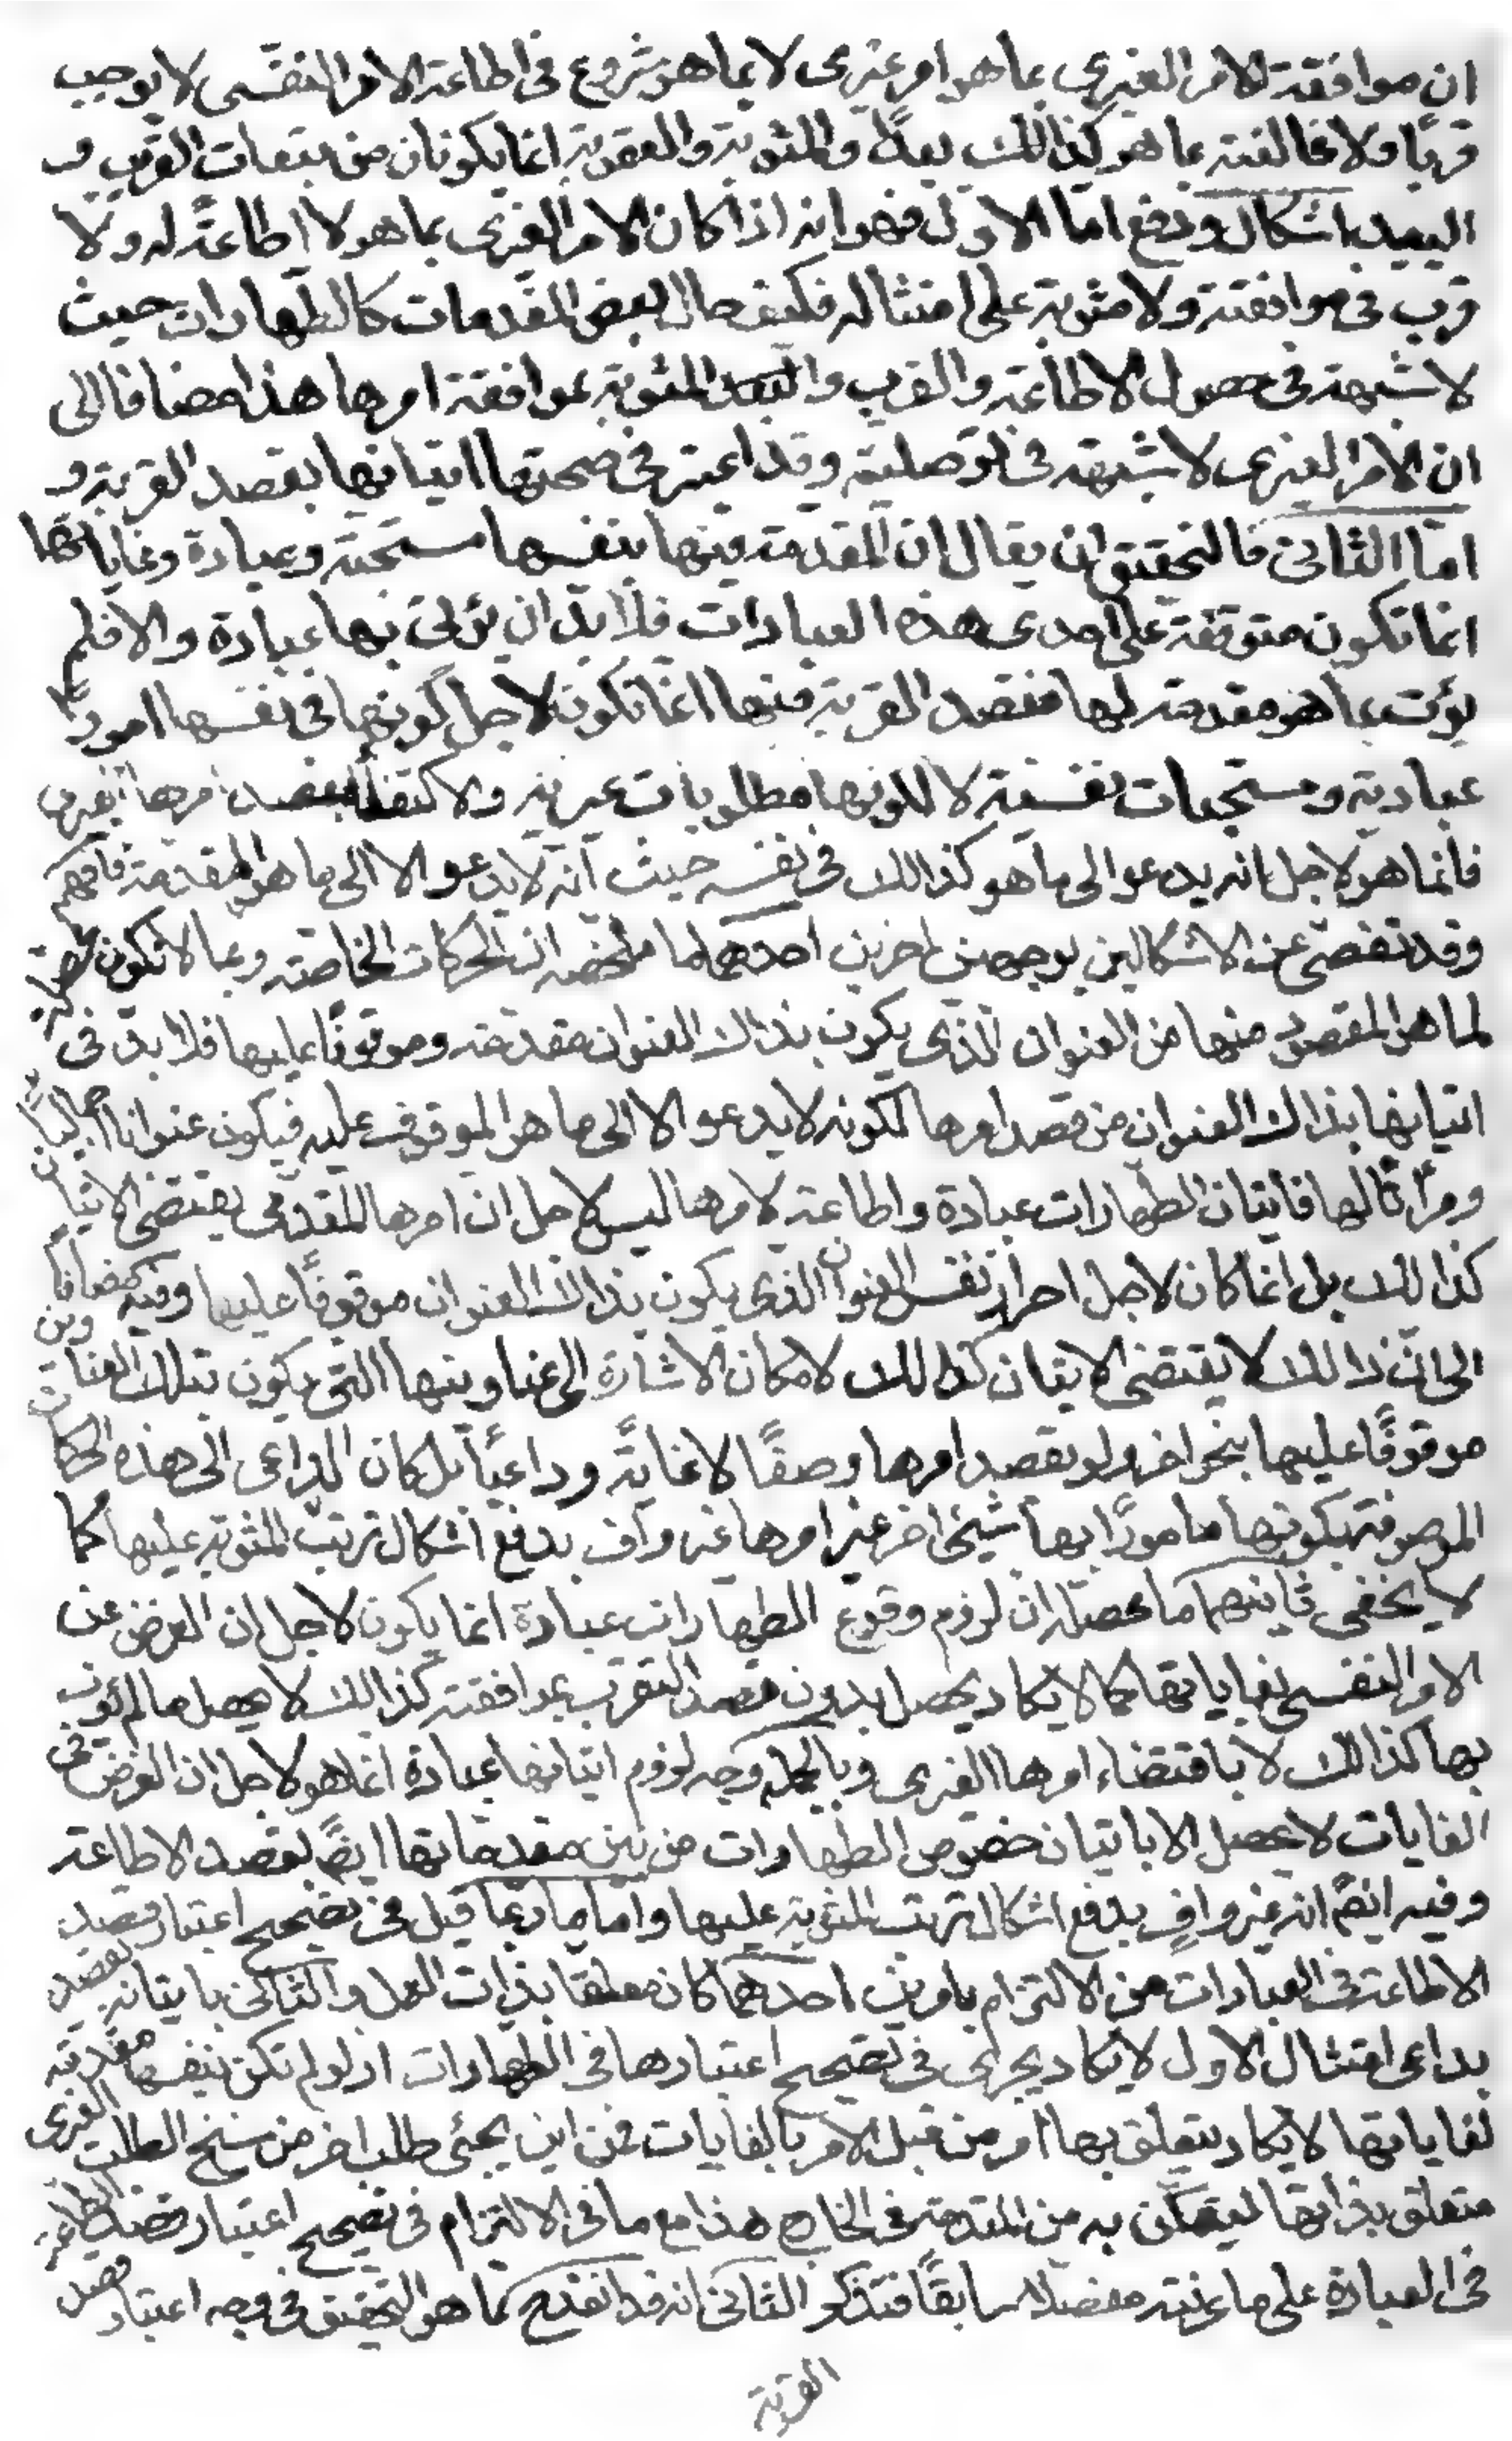 ان موافقة الامر الغيرى بما هو امر غيرى لا بما هو شروع فى اطاعة الامر النفسى لا يوجب
قربًا ولا مخالفته بما هو كذالك بعدًا والمثوبة والعقوبة انما يكونان من تبعات القرب و
البعد اشكال ودفع اما الاول فهو انه اذا كان الامر الغيرى بما هو لا اطاعة له ولا
قرب فى موافقته ولا مثوبة على امتثاله فكيف حال بعض المقدمات كالطهارات حيث
لا شبهة فى حصول الاطاعة والقرب والمثوبة بموافقة امرها هذا مضافا الى
ان الامر الغيرى لا شبهة فى توصليته وقد اعتبر فى صحتها اتيانها بقصد القربة و
اما الثانى فالتحقيق ان يقال ان المقدمة فيها بنفسها مستحبة وعبادة وغاياتها
انما تكون متوقفة على احدى هذه العبادات فلا بد ان يؤتى بها عبادة والا فلم
يؤت بما هو مقدمة لها فقصد القربة فيها انما تكون لاجل كونها فى نفسها امورًا
عبادية ومستحبات نفسية لا لكونها مطلوبات غيرية والاكتفاء بقصد امرها الغيرى
فانما هو لاجل انه يدعو الى ما هو كذالك فى نفسه حيث انه لا يدعو الا الى ما هو المقدمة فافهم
وقد تفصى عن الاشكالين بوجهين اخرين احدهما ما ملخصه ان الحركات الخاصة ربما لا تكون محصلة
لما هو المقصود منها من العنوان الذى يكون بذاك العنوان مقدمة وموقوفًا عليها فلا بد فى
اتيانها بذاك العنوان من قصد امرها لكونه لا يدعو الا الى ما هو الموقوف عليه فيكون عنوانا اجماليًا
ومرآتًا لها فاتيان الطهارات عبادة واطاعة لامرها ليس لاجل ان امرها المقدمى يقتضى الاتيان
كذالك بل انما كان لاجل احراز نفس العنوان الذى يكون بذاك العنوان موقوفًا عليها وفيه مضافا
الى ان ذالك لا يقتضى الاتيان كذالك لامكان الاشارة الى عناوينها التى يكون بتلك العناوين
موقوفًا عليها بنحو اخر ولو بقصد امرها وصفًا لا غاية وداعيًا بل كان الداعى الى هذه الحركات
الموصوفة بكونها مامورًا بها شيئى اخر غير امرها غير واف بدفع اشكال ترتب المثوبة عليها كما
لا يخفى ثانيهما ما محصله ان لزوم وقوع الطهارات عبادة انما يكون لاجل ان الغرض من
الامر النفسى بغاياتها كما لا يكاد يحصل بدون قصد التقرب بموافقته كذالك لا يحصل ما لم يؤت
بها كذالك لا باقتضاء امرها الغيرى وبالجملة وجه لزوم اتيانها عبادة انما هو لاجل ان الغرض فى
الغايات لا يحصل الا باتيان خصوص الطهارات من بين مقدماتها ايضًا بقصد الاطاعة
وفيه ايضًا انه غير وافٍ بدفع اشكال ترتب المثوبة عليها واما ما ربما قيل فى تصحيح اعتبار قصد
الاطاعة فى العبادات من الالتزام بامرين احدهما كان متعلقا بذات العمل والثانى باتيانه بقصد
بداعى امتثال الاول لا يكاد يجرى فى تصحيح اعتبارها فى الطهارات اذ لو لم تكن بنفسها مقدمة
لغاياتها لا يكاد يتعلق بها امر من قبل الامر بالغايات فمن اين يجئى طلب اخر من سنخ الطلب الغيرى
متعلق بذاتها ليتمكن به من المقدمة فى الخارج هذا مع ما فى الالتزام فى تصحيح اعتبار قصد الطاعة
فى العبادة على ما عرفته مفصلا سابقًا فتذكر الثانى انه قد انقدح مما هو التحقيق فى وجه اعتبار قصد
القربة